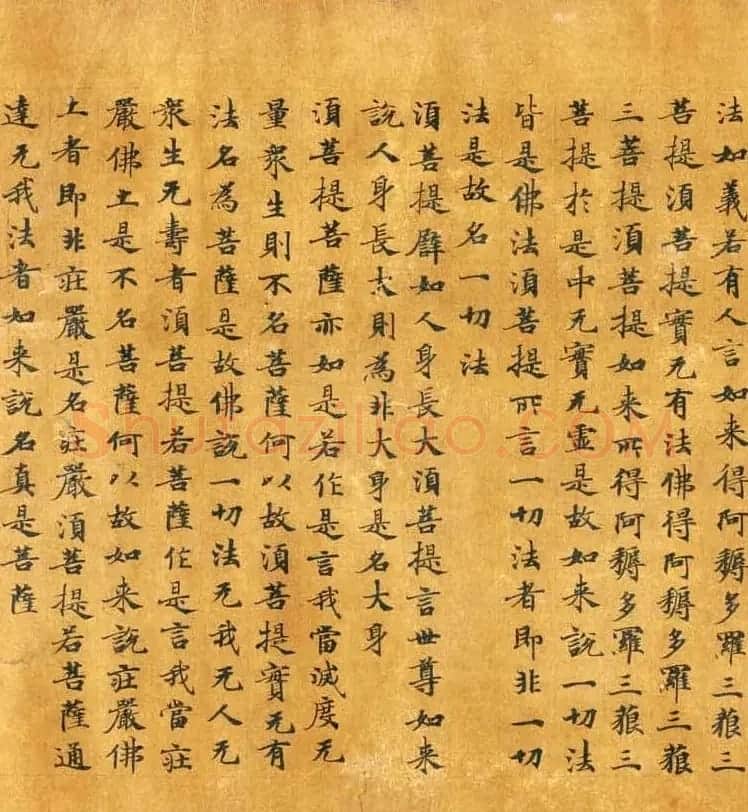 法如義若有人言如来得阿耨多羅三藐三
菩提須菩提實无有法佛得阿耨多羅三藐
三菩提須菩提如来所得阿耨多羅三藐三
菩提於是中无實无虛是故如来說一切法
皆是佛法須菩提所言一切法者即非一切
法是故名一切法
須菩提辟如人身長大須菩提言世尊如来
說人身長大則為非大身是名大身
須菩提菩薩亦如是若作是言我當滅度无
量衆生則不名菩薩何以故須菩提實无有
法名為菩薩是故佛說一切法无我无人无
衆生无壽者須菩提若菩薩作是言我當莊
嚴佛土是不名菩薩何以故如来說莊嚴佛
土者即非莊嚴是名莊嚴須菩提若菩薩通
達无我法者如来說名真是菩薩
Shufaziliao.COM